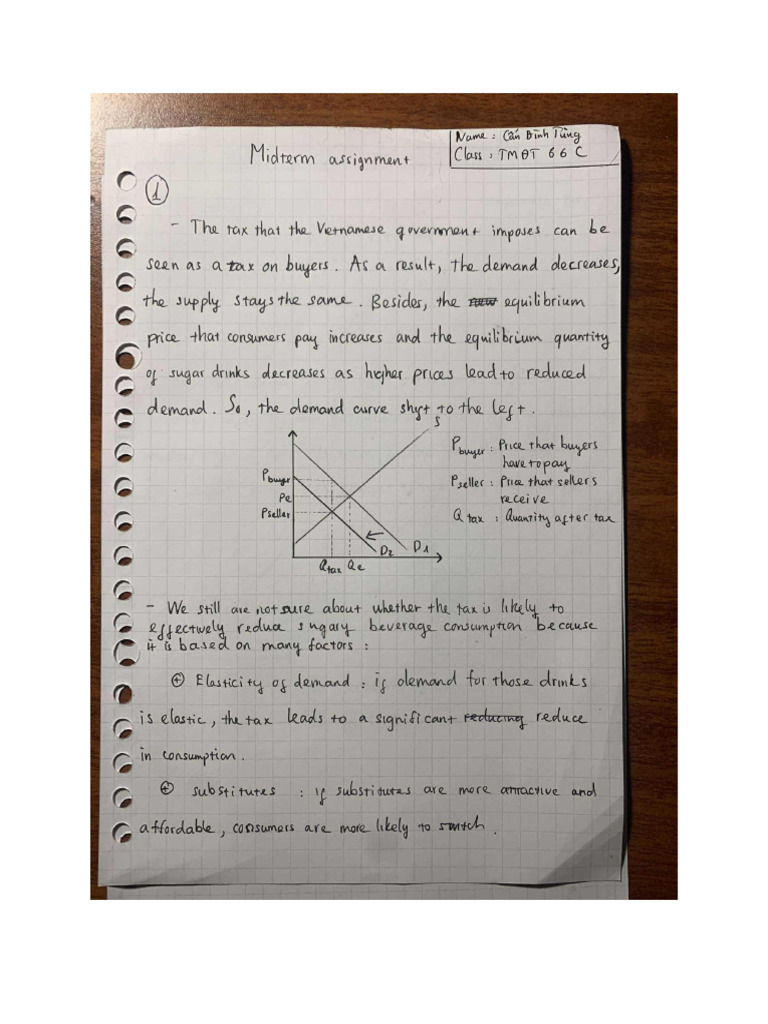 Name : Cấn Bình Tùng
Midterm assignment
Class : TMĐT 66C
1
- The tax that the Vietnamese government imposes can be
seen as a tax on buyers. As a result, the demand decreases,
the supply stays the same. Besides, the new equilibrium
price that consumers pay increases and the equilibrium quantity
of sugar drinks decreases as higher prices lead to reduced
demand. So, the demand curve shift to the left.
S
P buyer
Pe
P seller
D2
D1
Q tax Qe
P buyer : Price that buyers
have to pay
P seller : Price that sellers
receive
Q tax : Quantity after tax
- We still are not sure about whether the tax is likely to
effectively reduce sugary beverage consumption because
it is based on many factors :
+ Elasticity of demand : if demand for those drinks
is elastic, the tax leads to a significant reducing reduce
in consumption.
+ substitutes : if substitutes are more attractive and
affordable, consumers are more likely to switch.